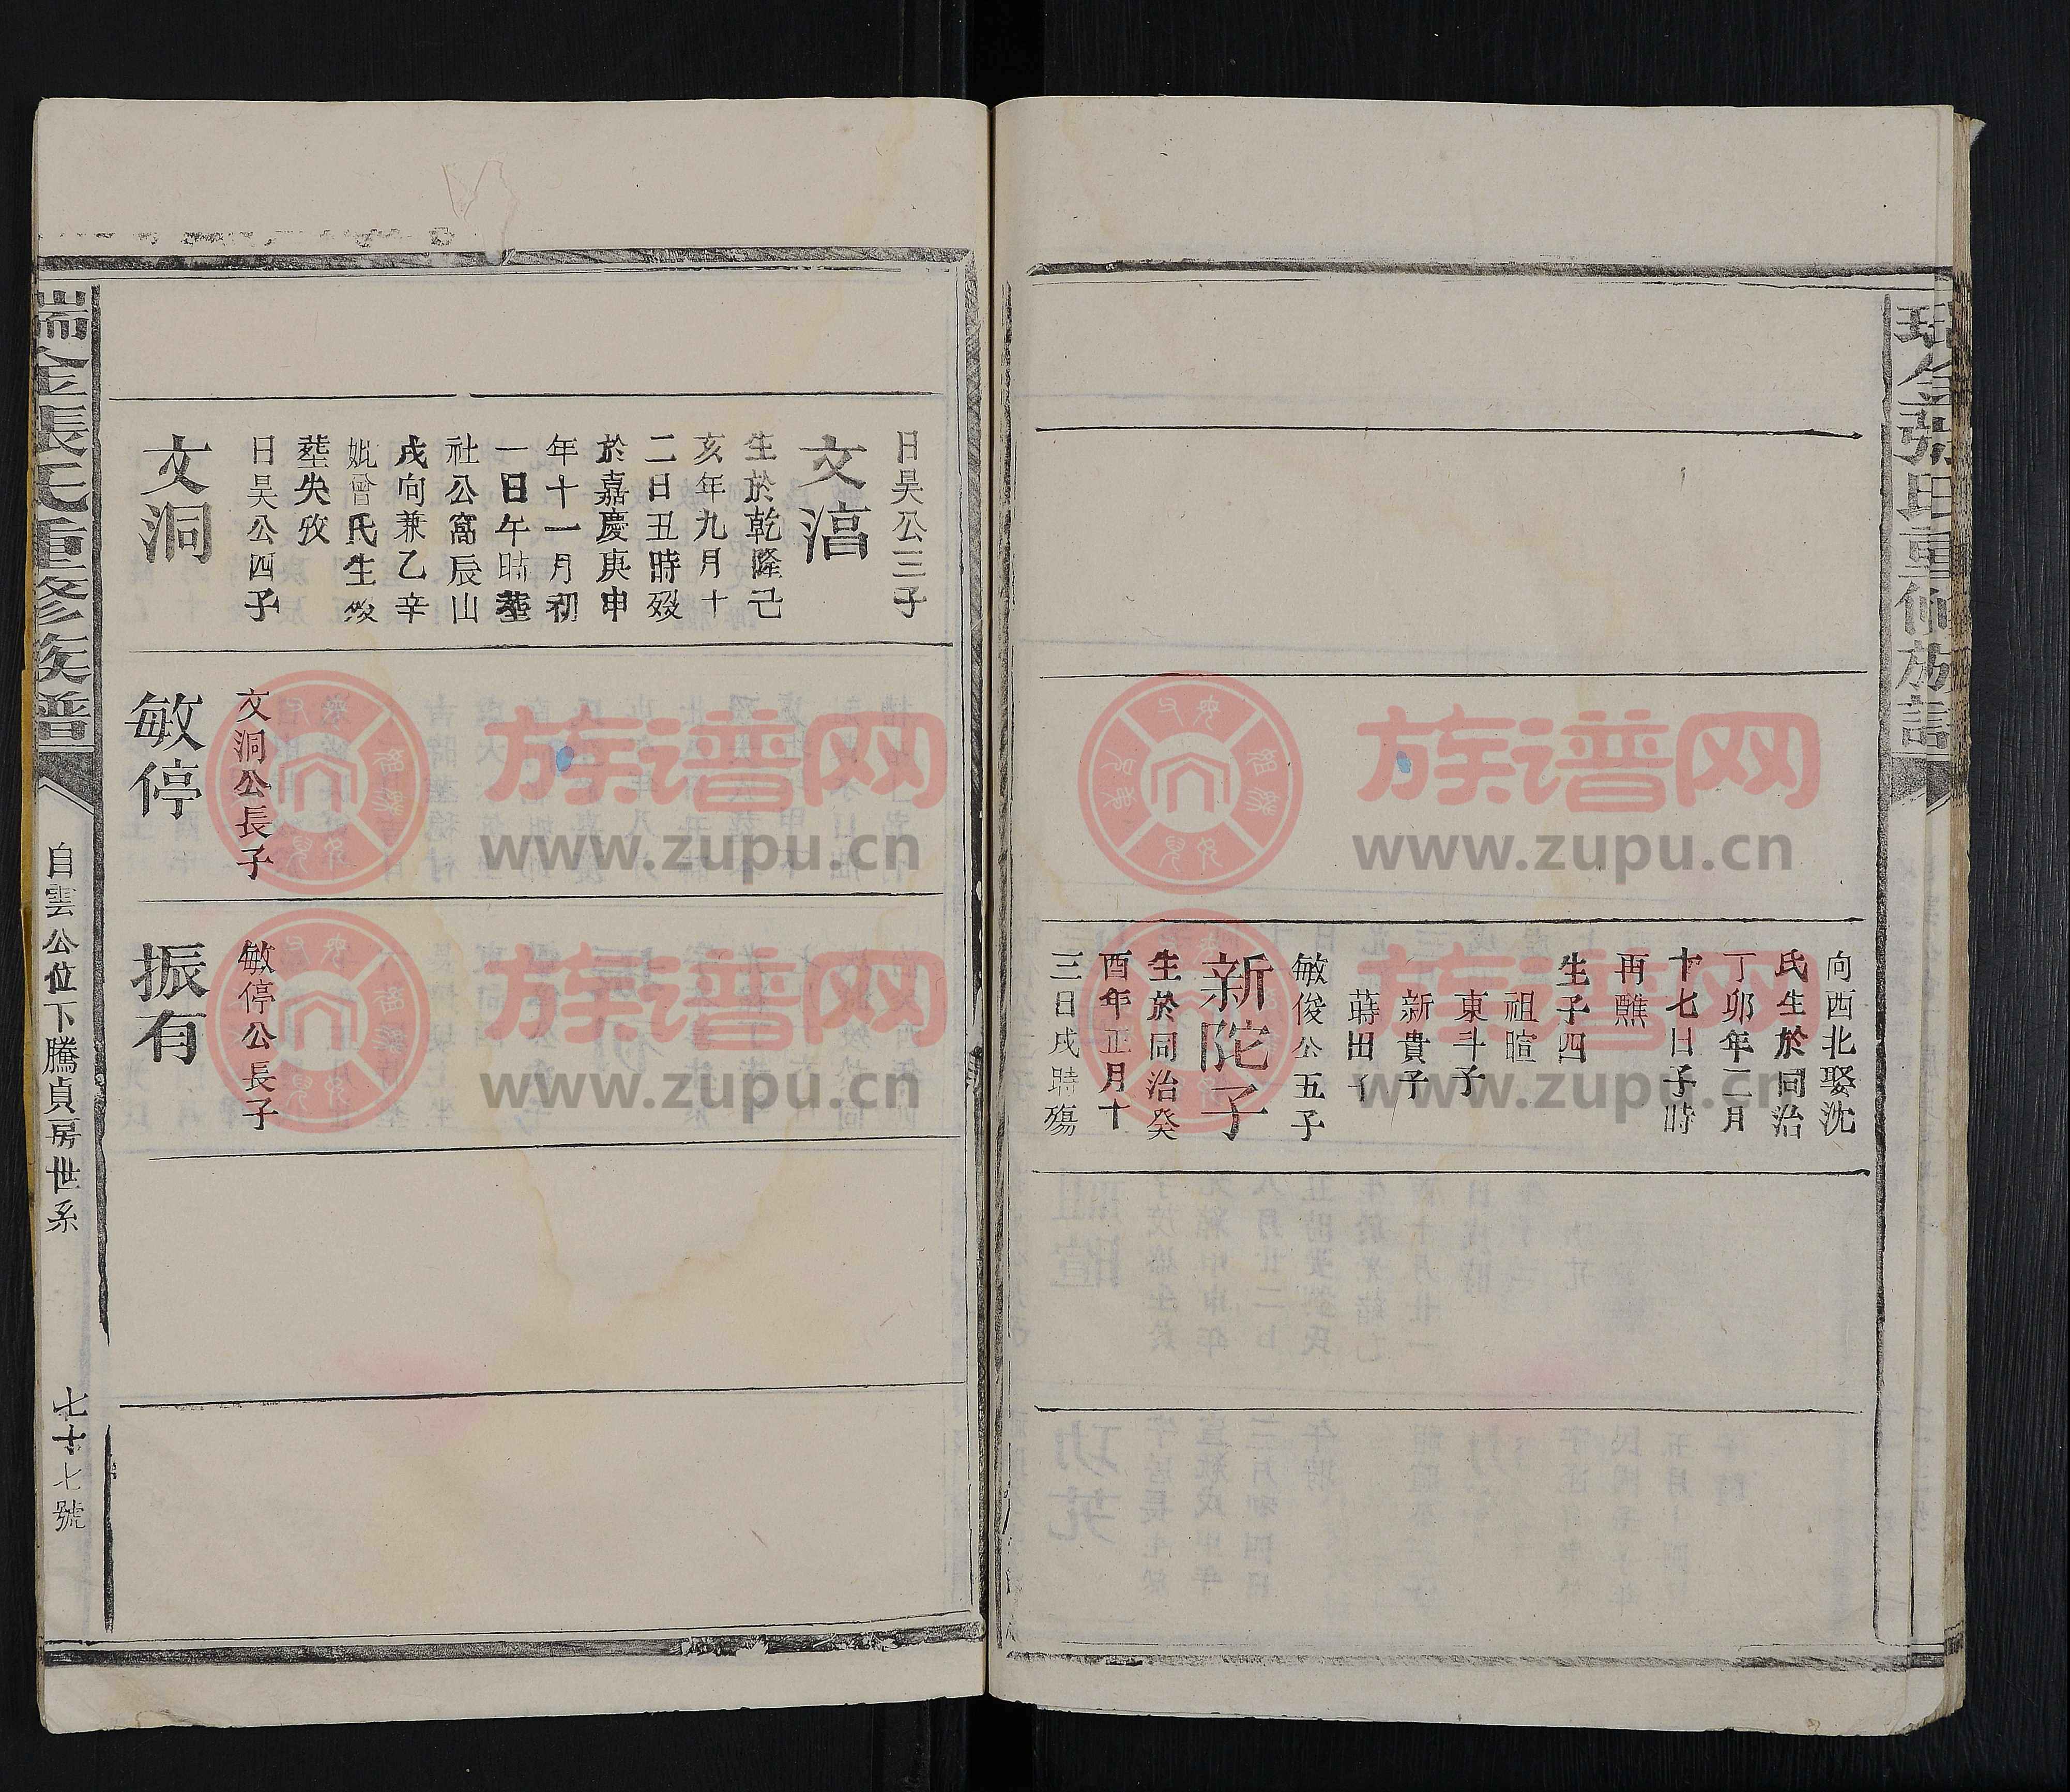 瑞金張氏重修族譜
向酉北娶沈
氏生於同治
丁卯年二月
十七日子時
再醮
生子四
祖暄
東斗子
新貴子
蒔田子
敏俊公五子
新陀子
生於同治癸
酉年正月十
三日戌時殤
日昊公三子
文湻
生於乾隆己
亥年九月十
二日丑時歿
於嘉慶庚申
年十一月初
一日午時塟
社公窩辰山
戌向兼乙辛
妣曾氏生歿
塟失攷
日昊公四子
文洞
文洞公長子
敏停
敏停公長子
振有
瑞金張氏重修族譜
自雲公位下騰貞房世系
七十七號
族谱网
www.zupu.cn
族谱网
www.zupu.cn
族谱网
www.zupu.cn
族谱网
www.zupu.cn